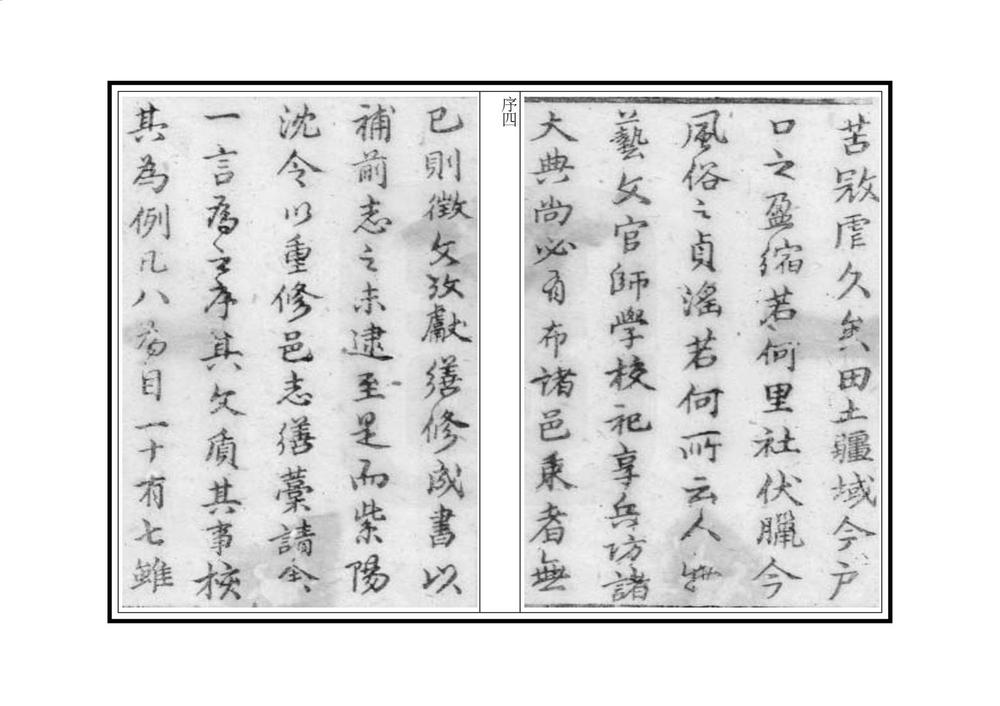 苦殹虐久矣田土疆域今户
口之盈縮若何里社伏臘今
風俗之貞滛若何所云人物
藝文官師學校祀享兵防諸
大典尚必有布諸邑乗者無
序四
已則徴文攷獻繕修成書以
補前志之未逮至是而紫陽
沈令以重修邑志繕藁請余
一言為之序其文質其事核
其為例凡八為目一十有七雖